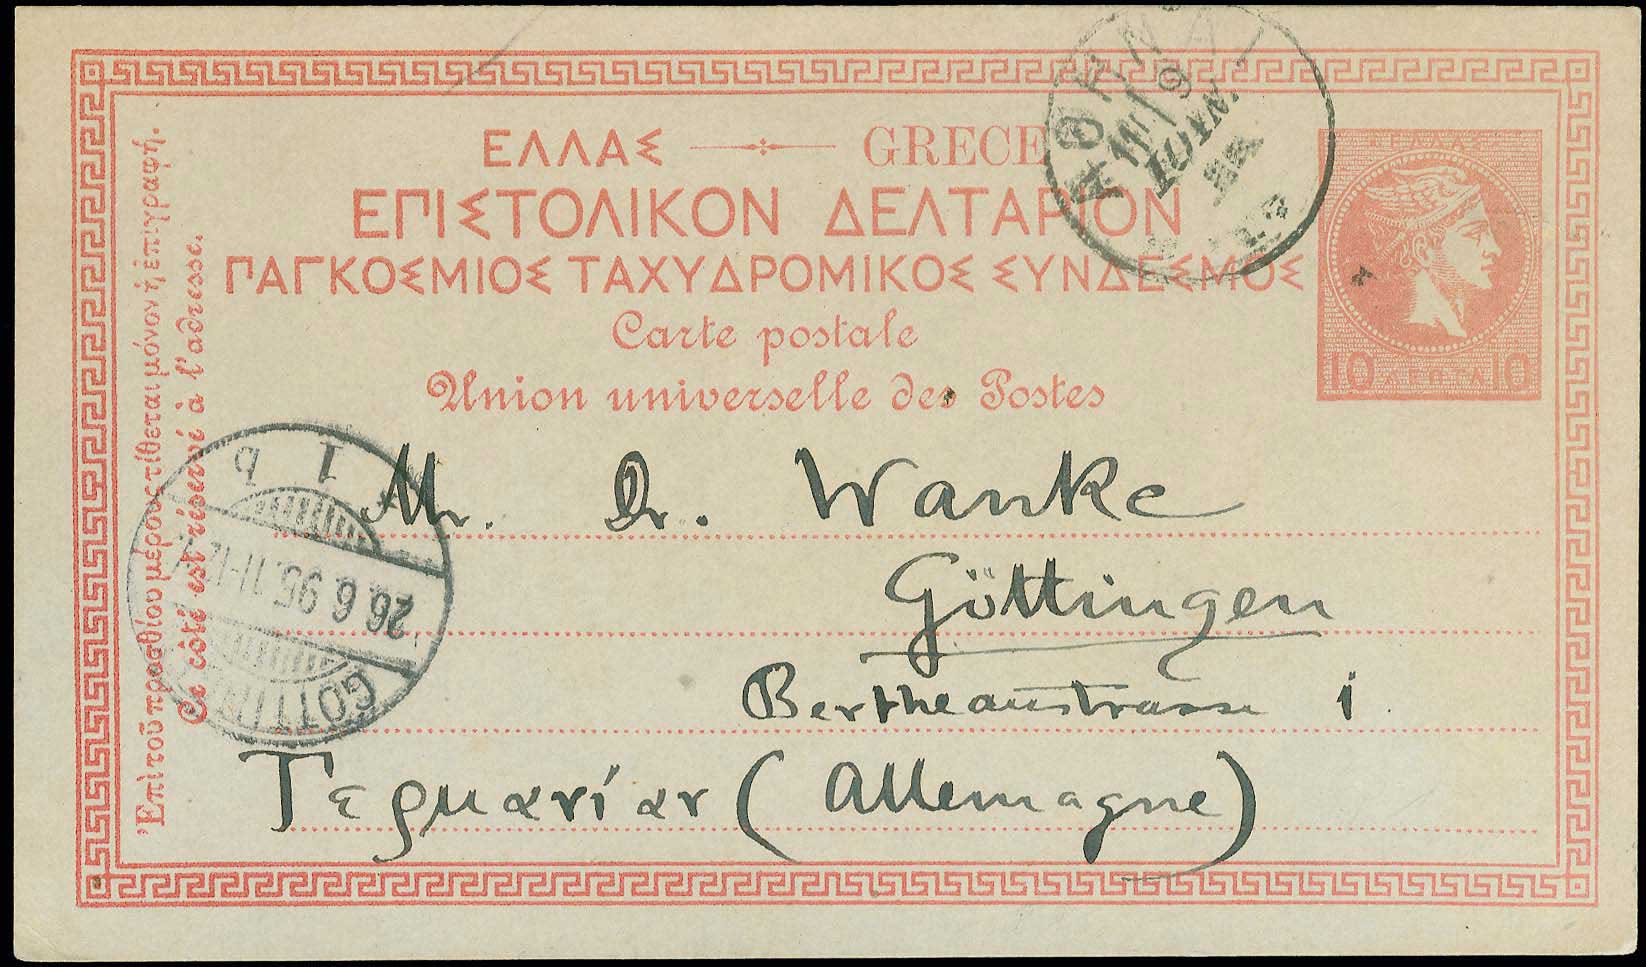 ΕΛΛΑΣ GRECE
ΕΠΙΣΤΟΛΙΚΟΝ ΔΕΛΤΑΡΙΟΝ
ΠΑΓΚΟΣΜΙΟΣ ΤΑΧΥΔΡΟΜΙΚΟΣ ΣΥΝΔΕΣΜΟΣ
Carte postale
Union universelle des Postes
Ἐπὶ τοῦ προσθίου μέρους τίθεται μόνον ἡ ἐπιγραφή.
Ce côté est réservé à l'adresse.
ΑΘΗΝΑΙ
9
ΙΟΥΝ.
ΕΛΛΑΣ
10 ΛΕΠΤΑ 10
1 b
26.6.95.11-12
GÖTTIN
Mr. Dr. Wanke
Göttingen
Bertheaustrasse 1.
Γερμανίαν (Allemagne)